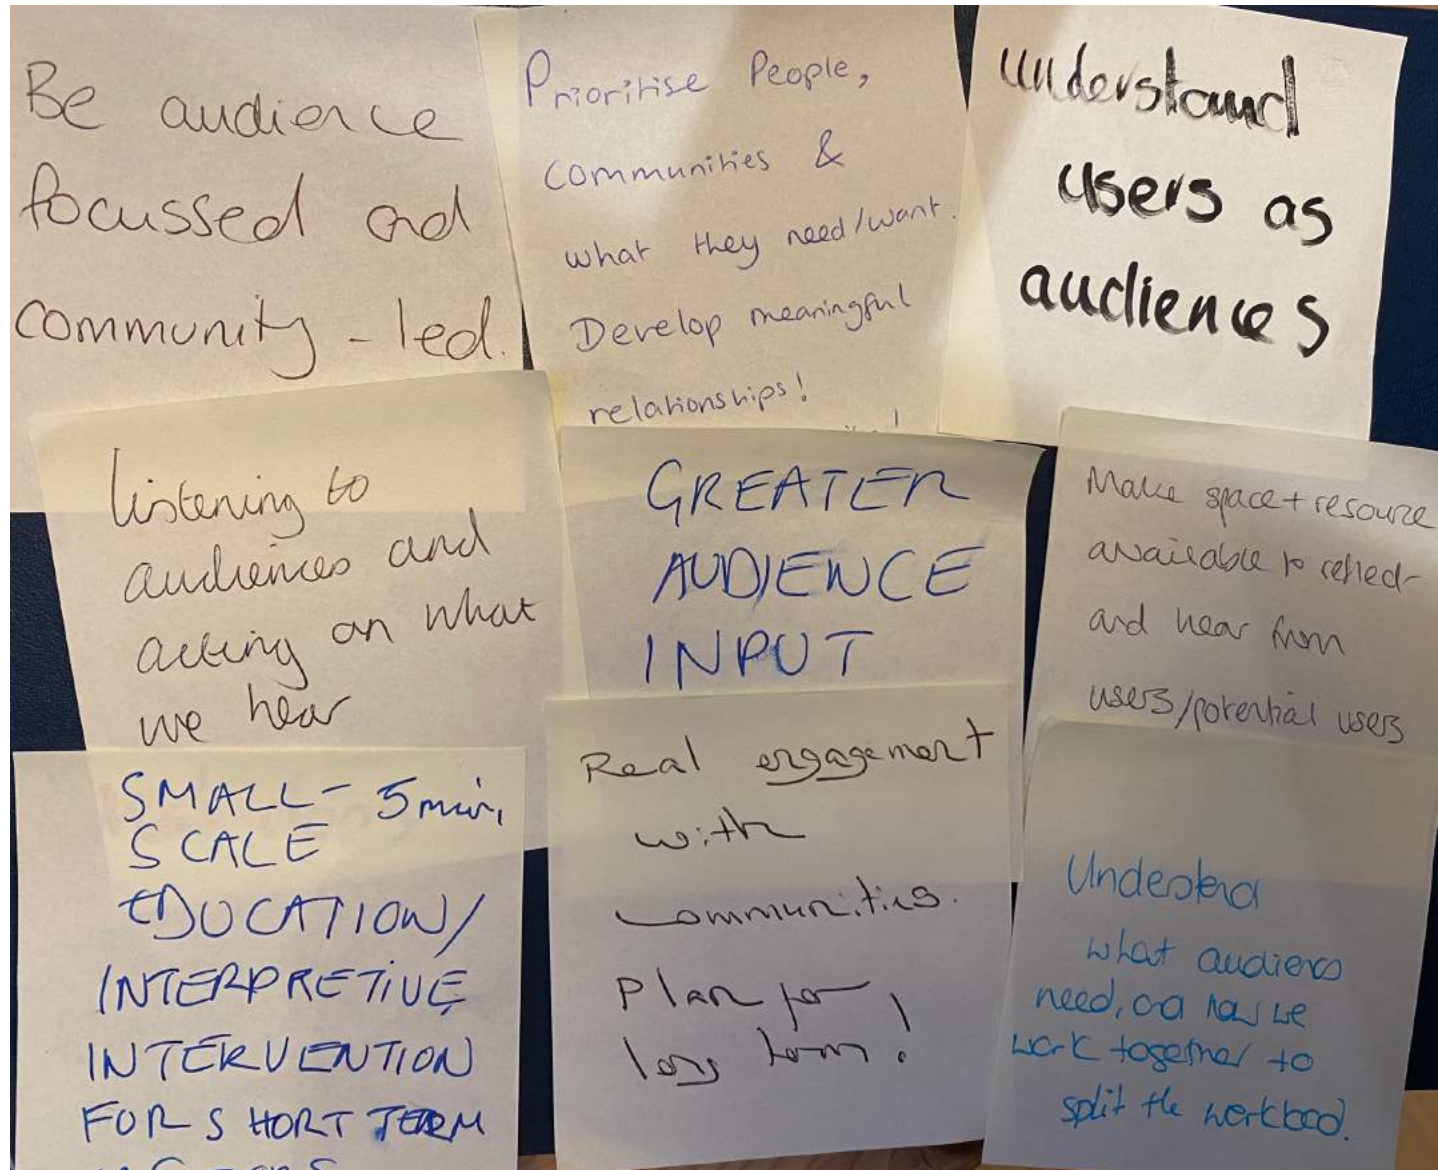 Be audience
focussed and
community-led.
Prioritise People,
communities &
what they need/want.
Develop meaningful
relationships!
understand
users as
audiences
listening to
audiences and
acting on what
we hear
GREATER
AUDIENCE
INPUT
Make space + resource
available to reflect
and hear from
users/potential users
SMALL- 5 min,
SCALE
EDUCATION/
INTERPRETIVE
INTERVENTION
FOR SHORT TERM
Real engagement
with
communities.
Plan for
long term!
Understand
what audiences
need, and how we
work together to
split the workload.